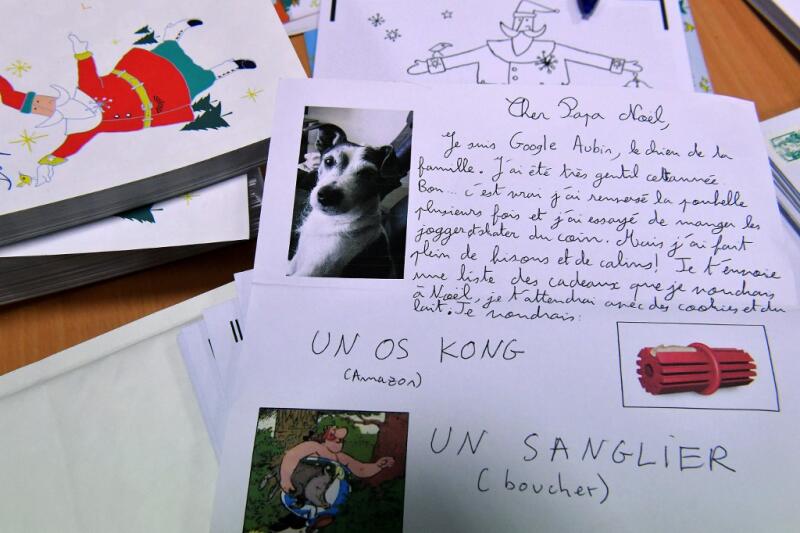 Cher Papa Noël,
Je suis Google Aubin, le chien de la
famille. J'ai été très gentil cette année.
Bon... c'est vrai j'ai renversé la poubelle
plusieurs fois et j'ai essayé de manger les
joggers du coin. Mais j'ai fait
plein de bisous et de calins! Je t'envoie
une liste des cadeaux que je voudrais
à Noël, je t'attendrai avec des cookies et du
lait. Je voudrais:
UN OS KONG
(Amazon)
UN SANGLIER
(boucher)